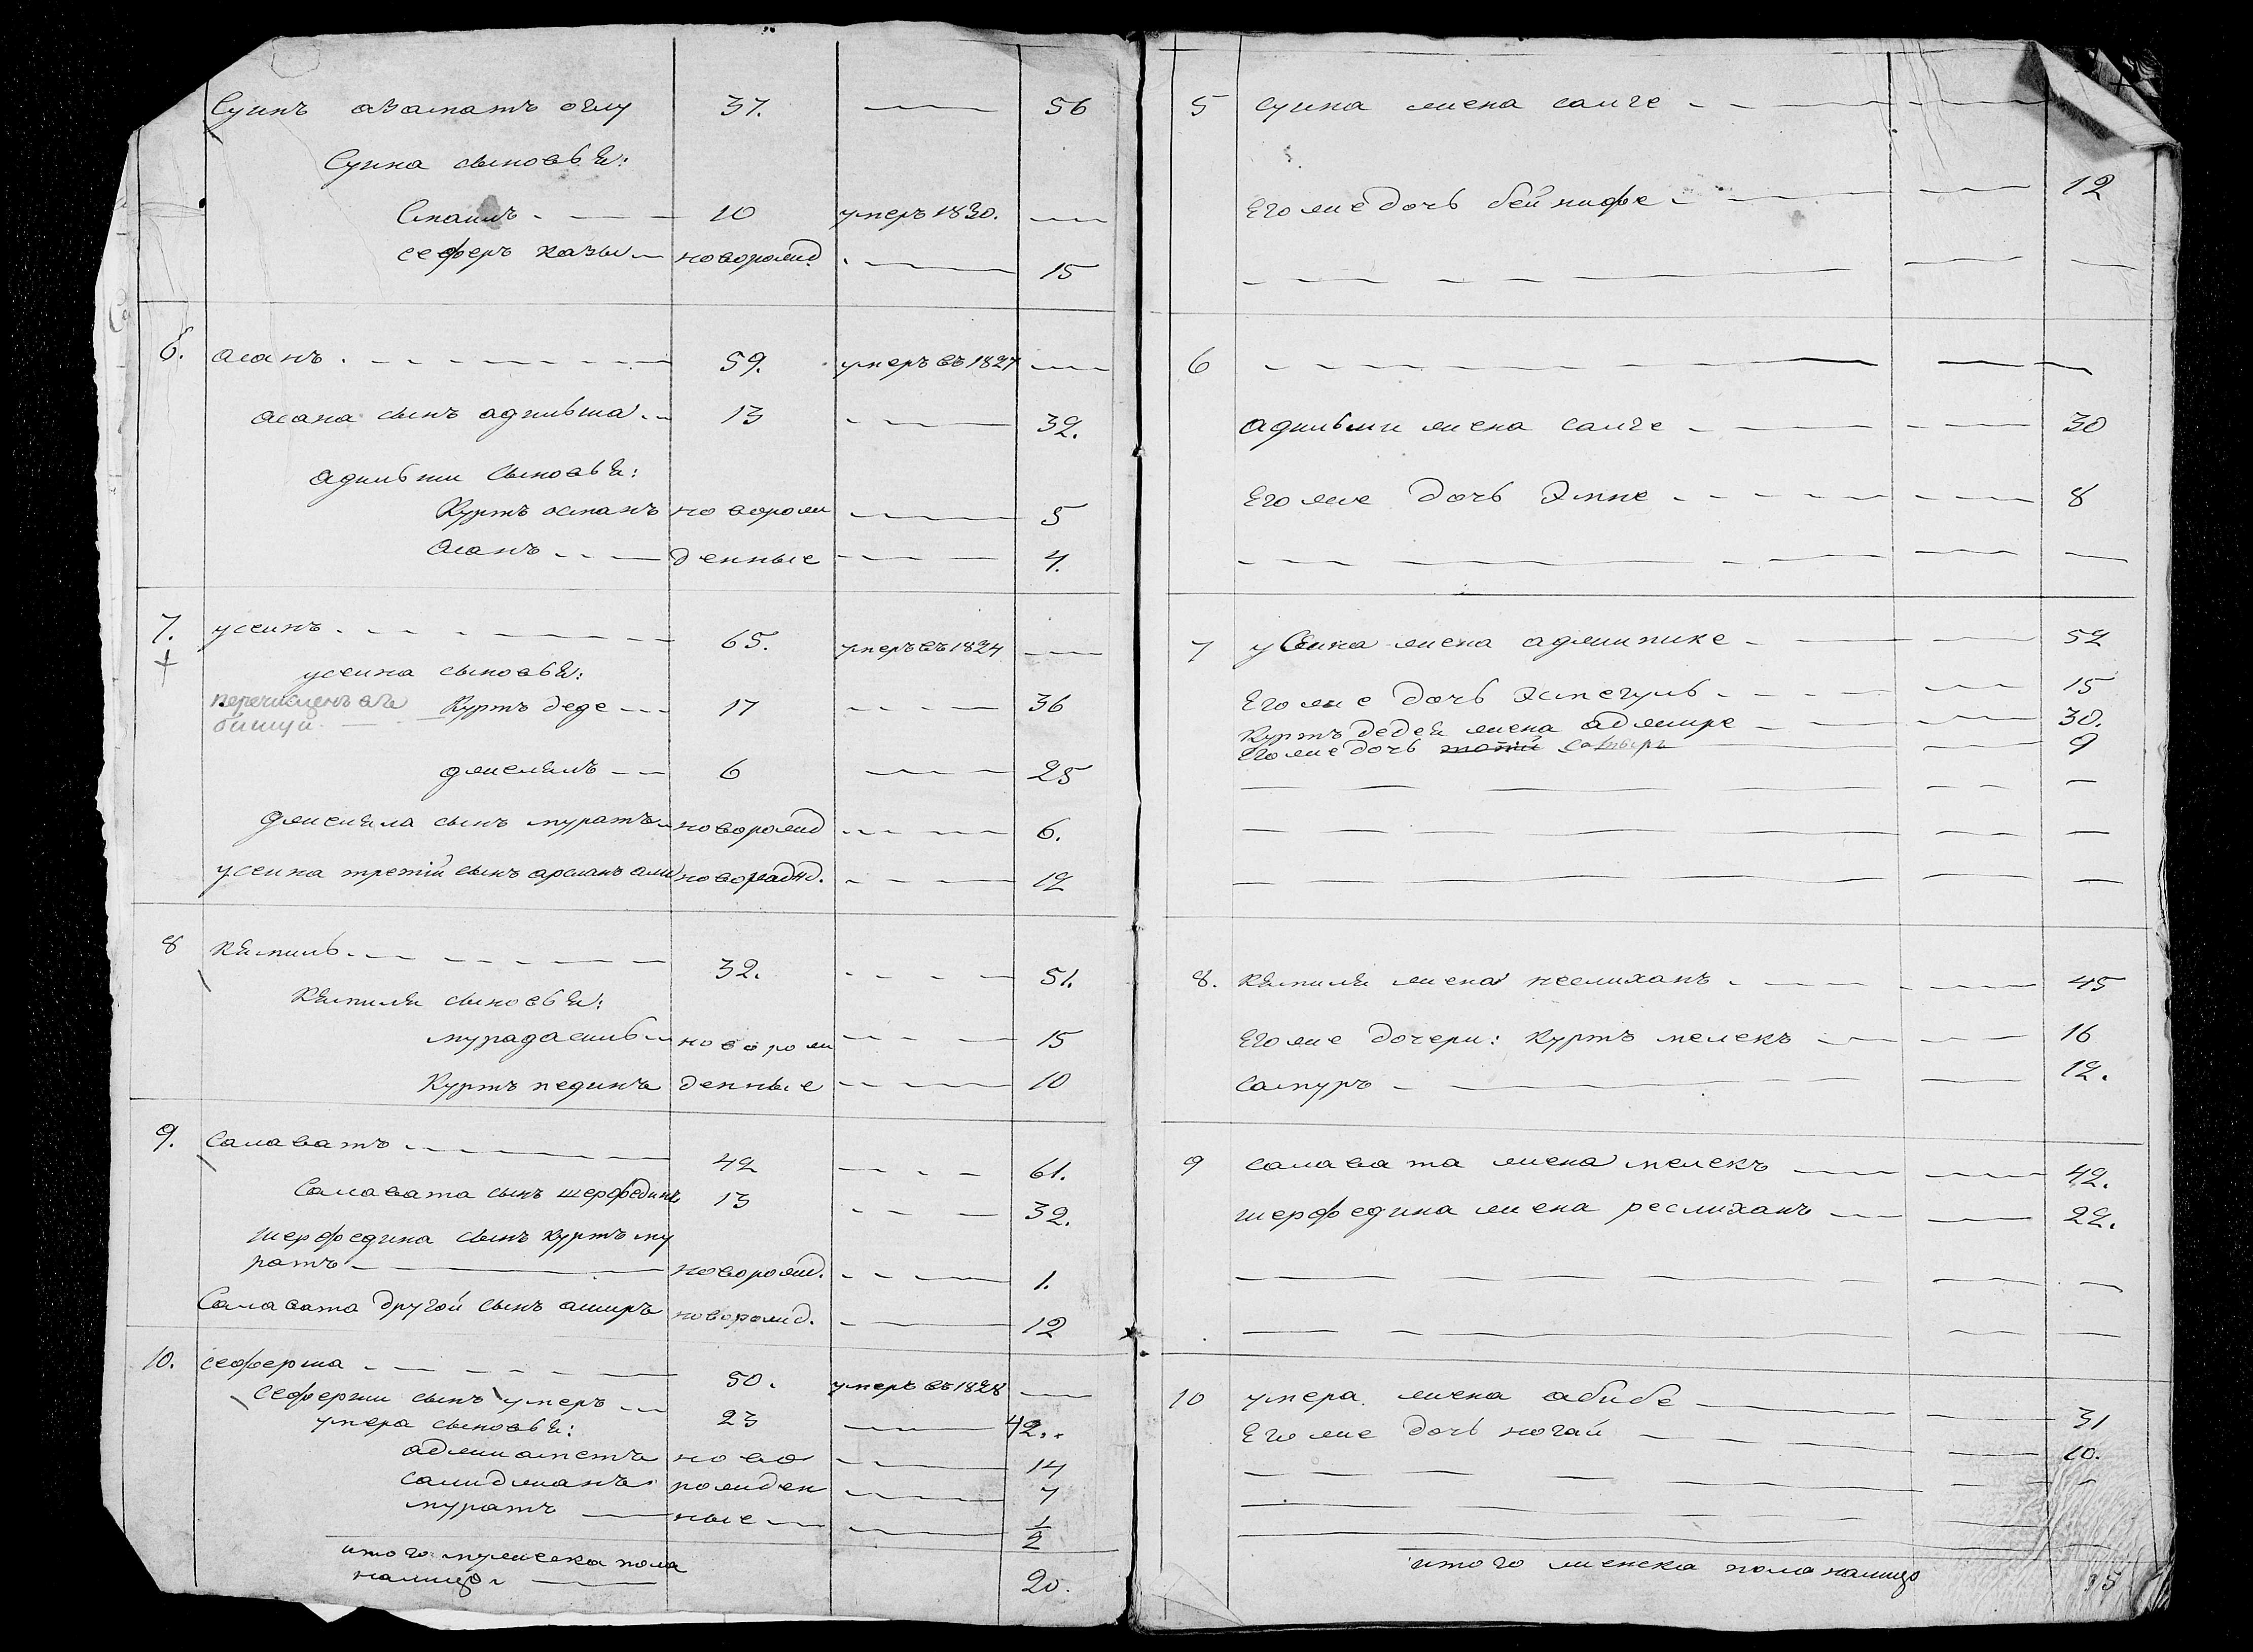 Суинъ аз аматъ оглу 37. 56
Суина сыновья:
Смаилъ 10 умеръ 1830.
сеферъ казы новорожд. 15
6. асанъ 59. умеръ въ 1827
асана сынъ адильша 13 32.
адильши сыновья:
Куртъ османъ новорож 5
Асанъ денные 4.
7. усеинъ 65. умеръ въ 1824
усеина сыновья:
перечисленъ въ Куртъ деде 17 36
джелялъ 6 25
джеляла сынъ муратъ новорожд 6.
усеина третій сынъ арсланъ али новорожд. 12
8 Кямиль 32. 51.
Кямиля сыновья:
мурадасиль новорож 15
Куртъ мединъ денные 10
9. Салаватъ 42 61.
Салавата сынъ шерфединъ 13 32.
шерфедина сынъ куртъ му
ратъ новорожд. 1.
Салавата другой сынъ аширъ новорожд. 12
10. сеферша 50. умеръ въ 1828
сеферши сынъ умеръ 23 42.
умера сыновья:
аджиаметъ ново 14
салиджанъ рожден 7
муратъ ные 1/2
итого мужеска пола
налицо 20.
5 суина жена салге
Его же дочь бей нифе 12
6
адильши жена салге 30
Его же дочь Эмне 8
7 усеина жена аджипике 52
Его же дочь Эстегуль 15
Куртъ дедея жена аджире 30.
Его же дочь 9
8. Кямиля жена неслиханъ 45
Его же дочери: Куртъ мелекъ 16
самуръ 12.
9 салавата жена мелекъ 42.
шерфедина жена реслиханъ 22.
10 умера жена абибе 31
Его же дочь ногай 10.
итого женска пола налицо 15